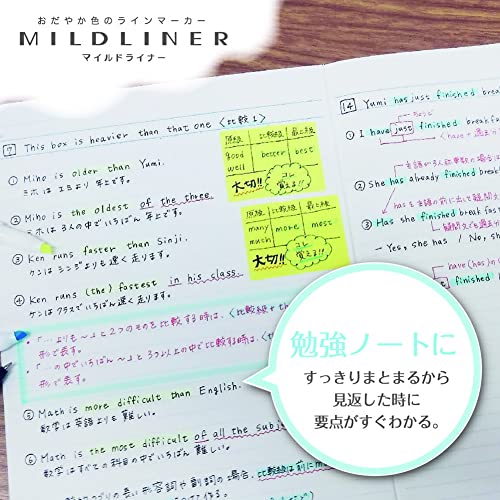 おだやか色のラインマーカー
MILDLINER
マイルドライナー
7 This box is heavier than that one 〈比較1〉
① Miho is older than Yumi.
ミホは ユミより 年上です。
② Miho is the oldest of the three.
ミホは 3人の中でいちばん 年上です。
③ Ken runs faster than Sinji.
ケンは シンジよりも 速く 走ります。
④ Ken runs (the) fastest in his class.
ケンは クラスでいちばん 速く 走ります。
・「…よりも～」と2つのものを比較する時は、〈比較級+th
形で表す。
・「…の中でいちばん～」と3つ以上の中で比較する時は、〈
形で表す。
⑤ Math is more difficult than English.
数学は 英語よりも 難しい。
⑥ Math is the most difficult of all the subj
数学は すべての 科目の中でいちばん 難しい。
の長い形容詞や副詞の場合、比較級は前に m
原級 比較級 最上級
good
well better best
大切!! コレ覚える!!
原級 比較級 最上級
many
much more most
大切!! コレ覚える!!
14 Yumi has just finished breakf
① I have just finished breakf
② She has already finished break
③ Has she finished break
- Yes, she has / No, sh
have(has)
勉強ノートに
すっきりまとまるから
見返した時に
要点がすぐわかる。